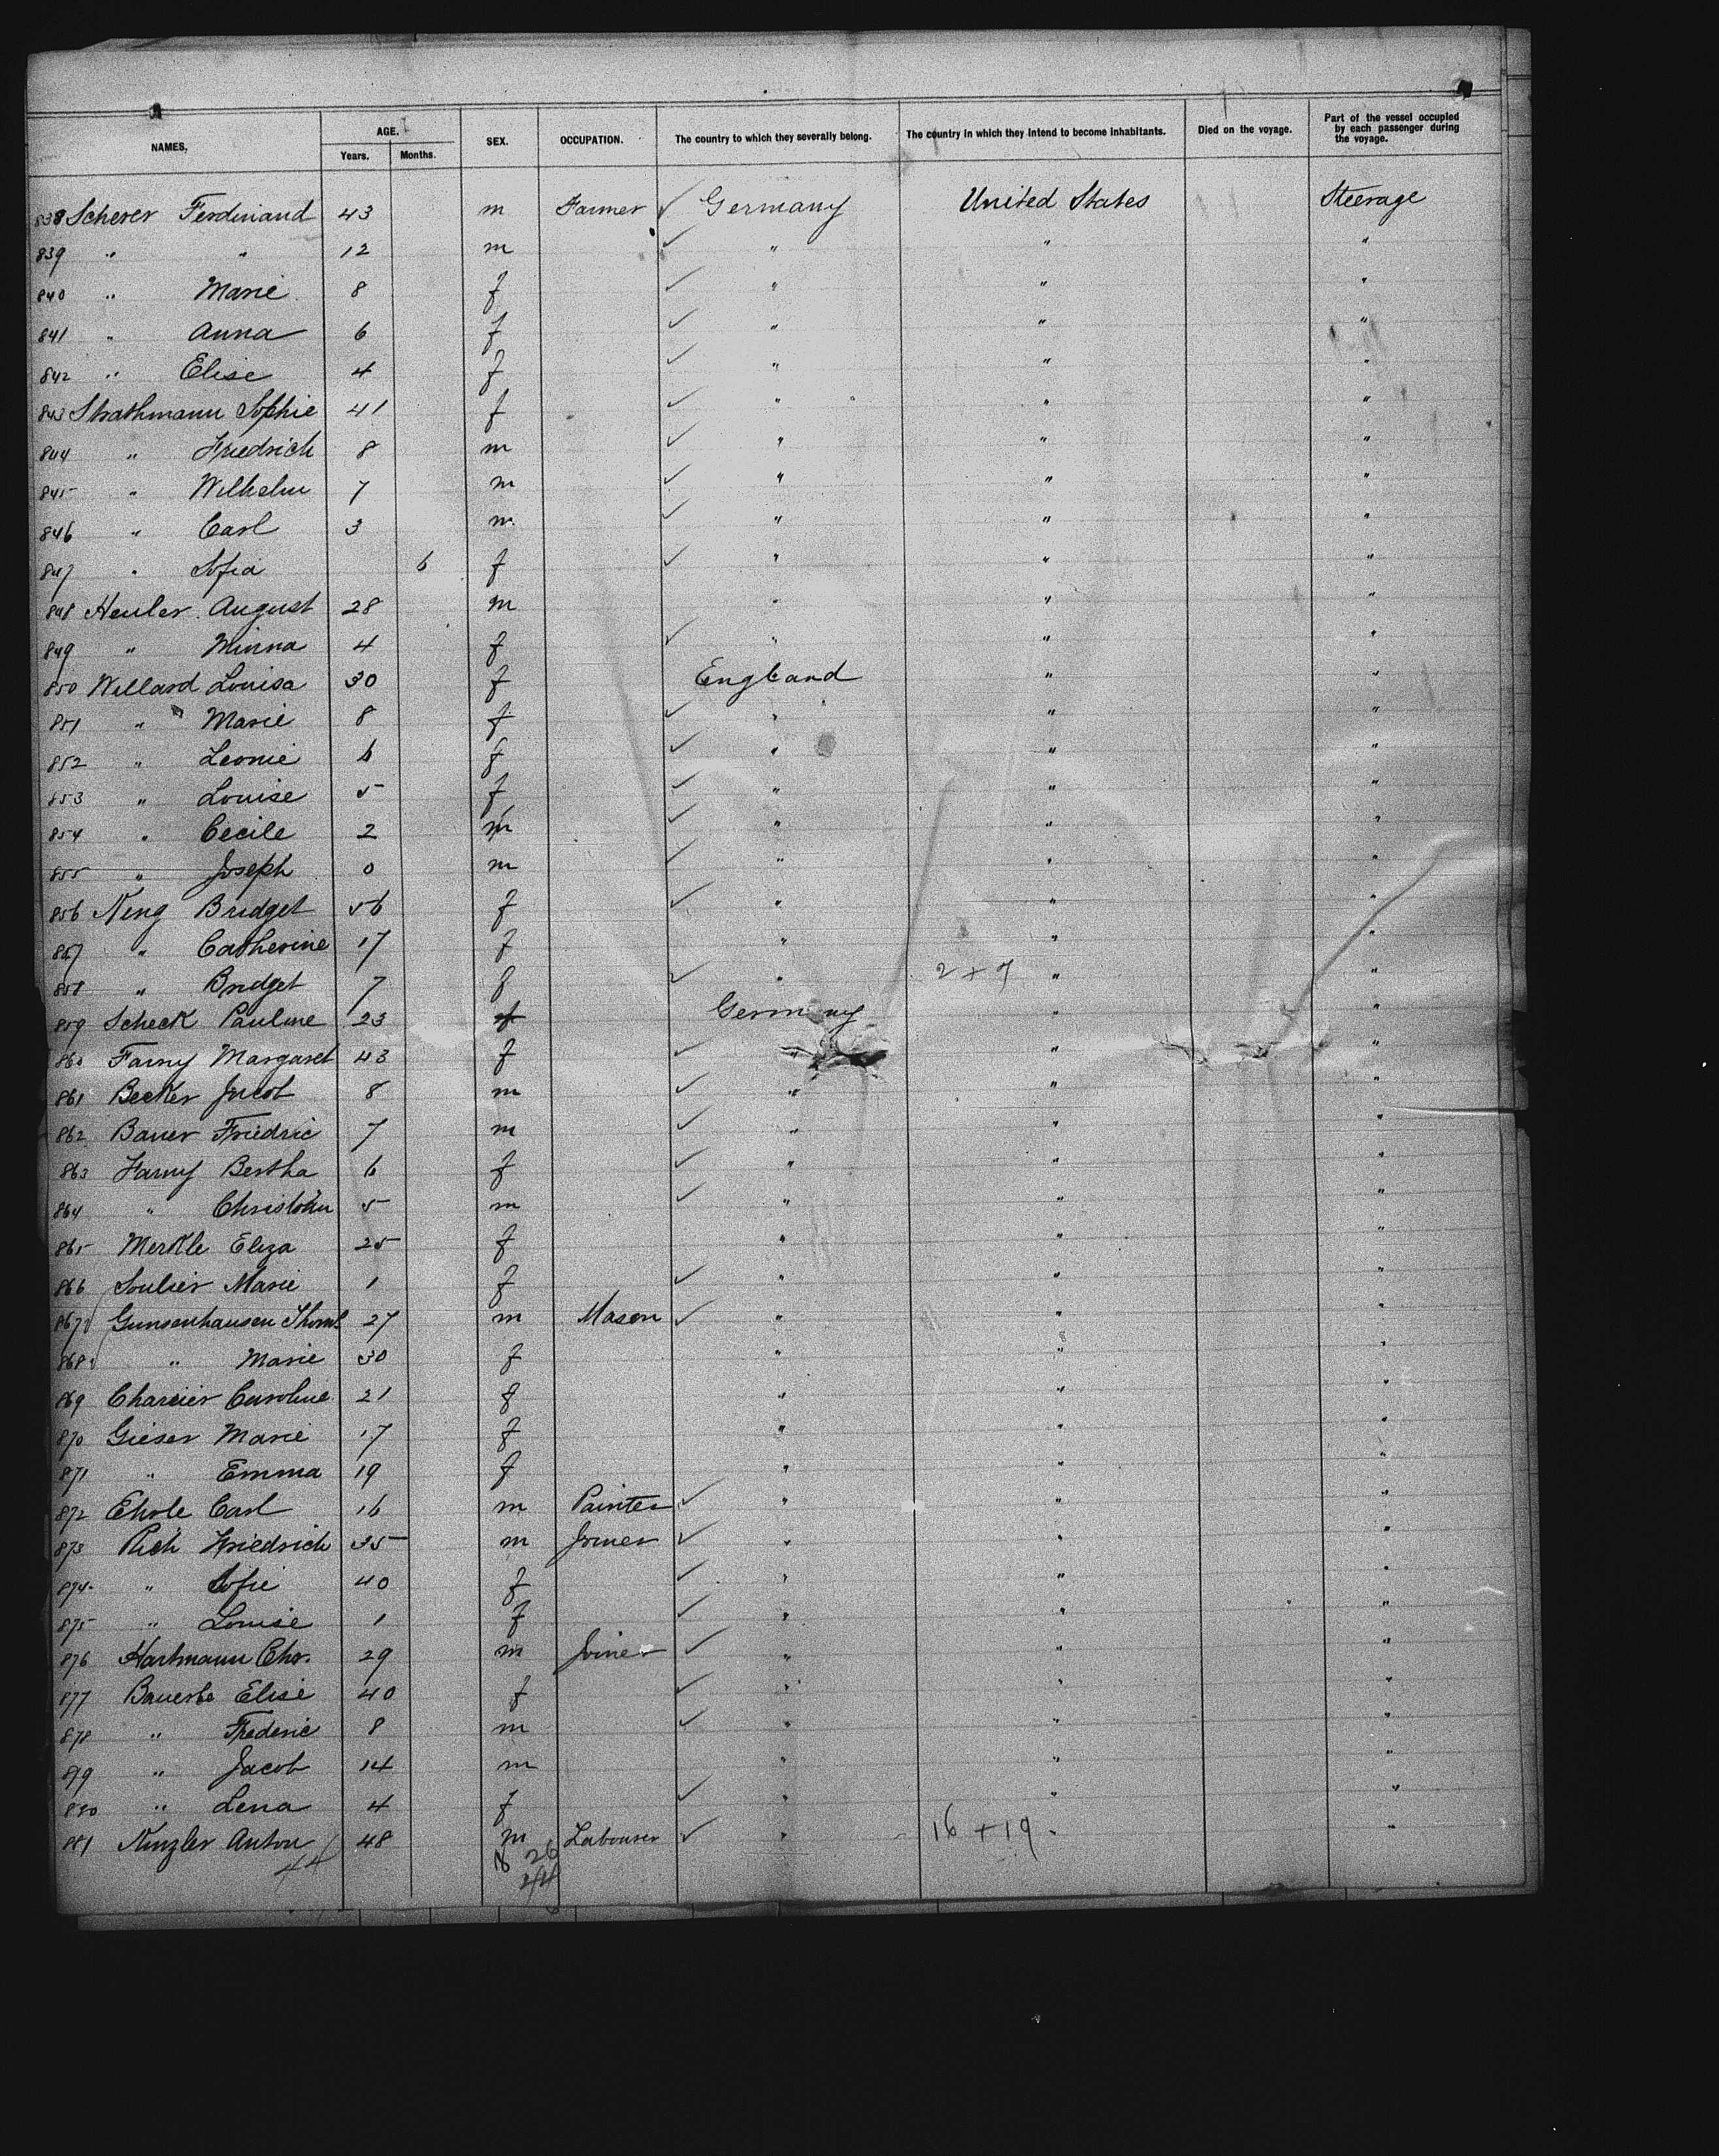 NAMES. AGE. Years. Months. SEX. OCCUPATION. The country to which they severally belong. The country in which they intend to become inhabitants. Died on the voyage. Part of the vessel occupied by each passenger during the voyage.
838 Scherer Ferdinand 43 m Farmer ✓ Germany United States Steerage
839 " " 12 m ✓ " " "
840 " Marie 8 f ✓ " " "
841 " Anna 6 f ✓ " " "
842 " Elise 4 f ✓ " " "
843 Strathmann Sophie 41 f ✓ " " "
844 " Friedrich 8 m ✓ " " "
845 " Wilhelm 7 m ✓ " " "
846 " Carl 3 m ✓ " " "
847 " Sofia 6 f ✓ " " "
848 Henler August 28 m " " "
849 " Minna 4 f ✓ " " "
850 Willard Louisa 30 f England " "
851 " Marie 8 f ✓ " " "
852 " Leonie 6 f ✓ " " "
853 " Louise 5 f ✓ " " "
854 " Cecile 2 m ✓ " " "
855 " Joseph 0 m ✓ " " "
856 Neng Bridget 56 f ✓ " " "
857 " Catherine 17 f " " "
858 " Bridget 7 f ✓ " 2 + 7 " "
859 Scheck Pauline 23 f Germany " "
860 Farny Margaret 43 f ✓ " " "
861 Becker Jacob 8 m ✓ " " "
862 Bauer Friedric 7 m ✓ " " "
863 Farny Bertha 6 f ✓ " " "
864 " 5 m ✓ " " "
865 Merkle Eliza 25 f " " "
866 Soulier Marie 1 f ✓ " " "
867 Gunsenhausen Thoms 27 m Mason ✓ " " "
868 " Marie 30 f " " "
869 Caroline 21 f " " "
870 Gieser Marie 17 f " " "
871 " Emma 19 f " " "
872 Carl 16 m Painter ✓ " " "
873 Rich Friedrich 35 m Joiner ✓ " " "
874 " Sofie 40 f ✓ " " "
875 " Louise 1 f ✓ " " "
876 Hartmann Chr. 29 m Joiner ✓ " " "
877 Elise 40 f ✓ " " "
878 " Frederic 8 m ✓ " " "
879 " Jacob 14 m " " "
880 " Lena 4 f ✓ " " "
881 Kinzler Anton 48 m Labourer ✓ " 16 + 19 " "
44 26
44